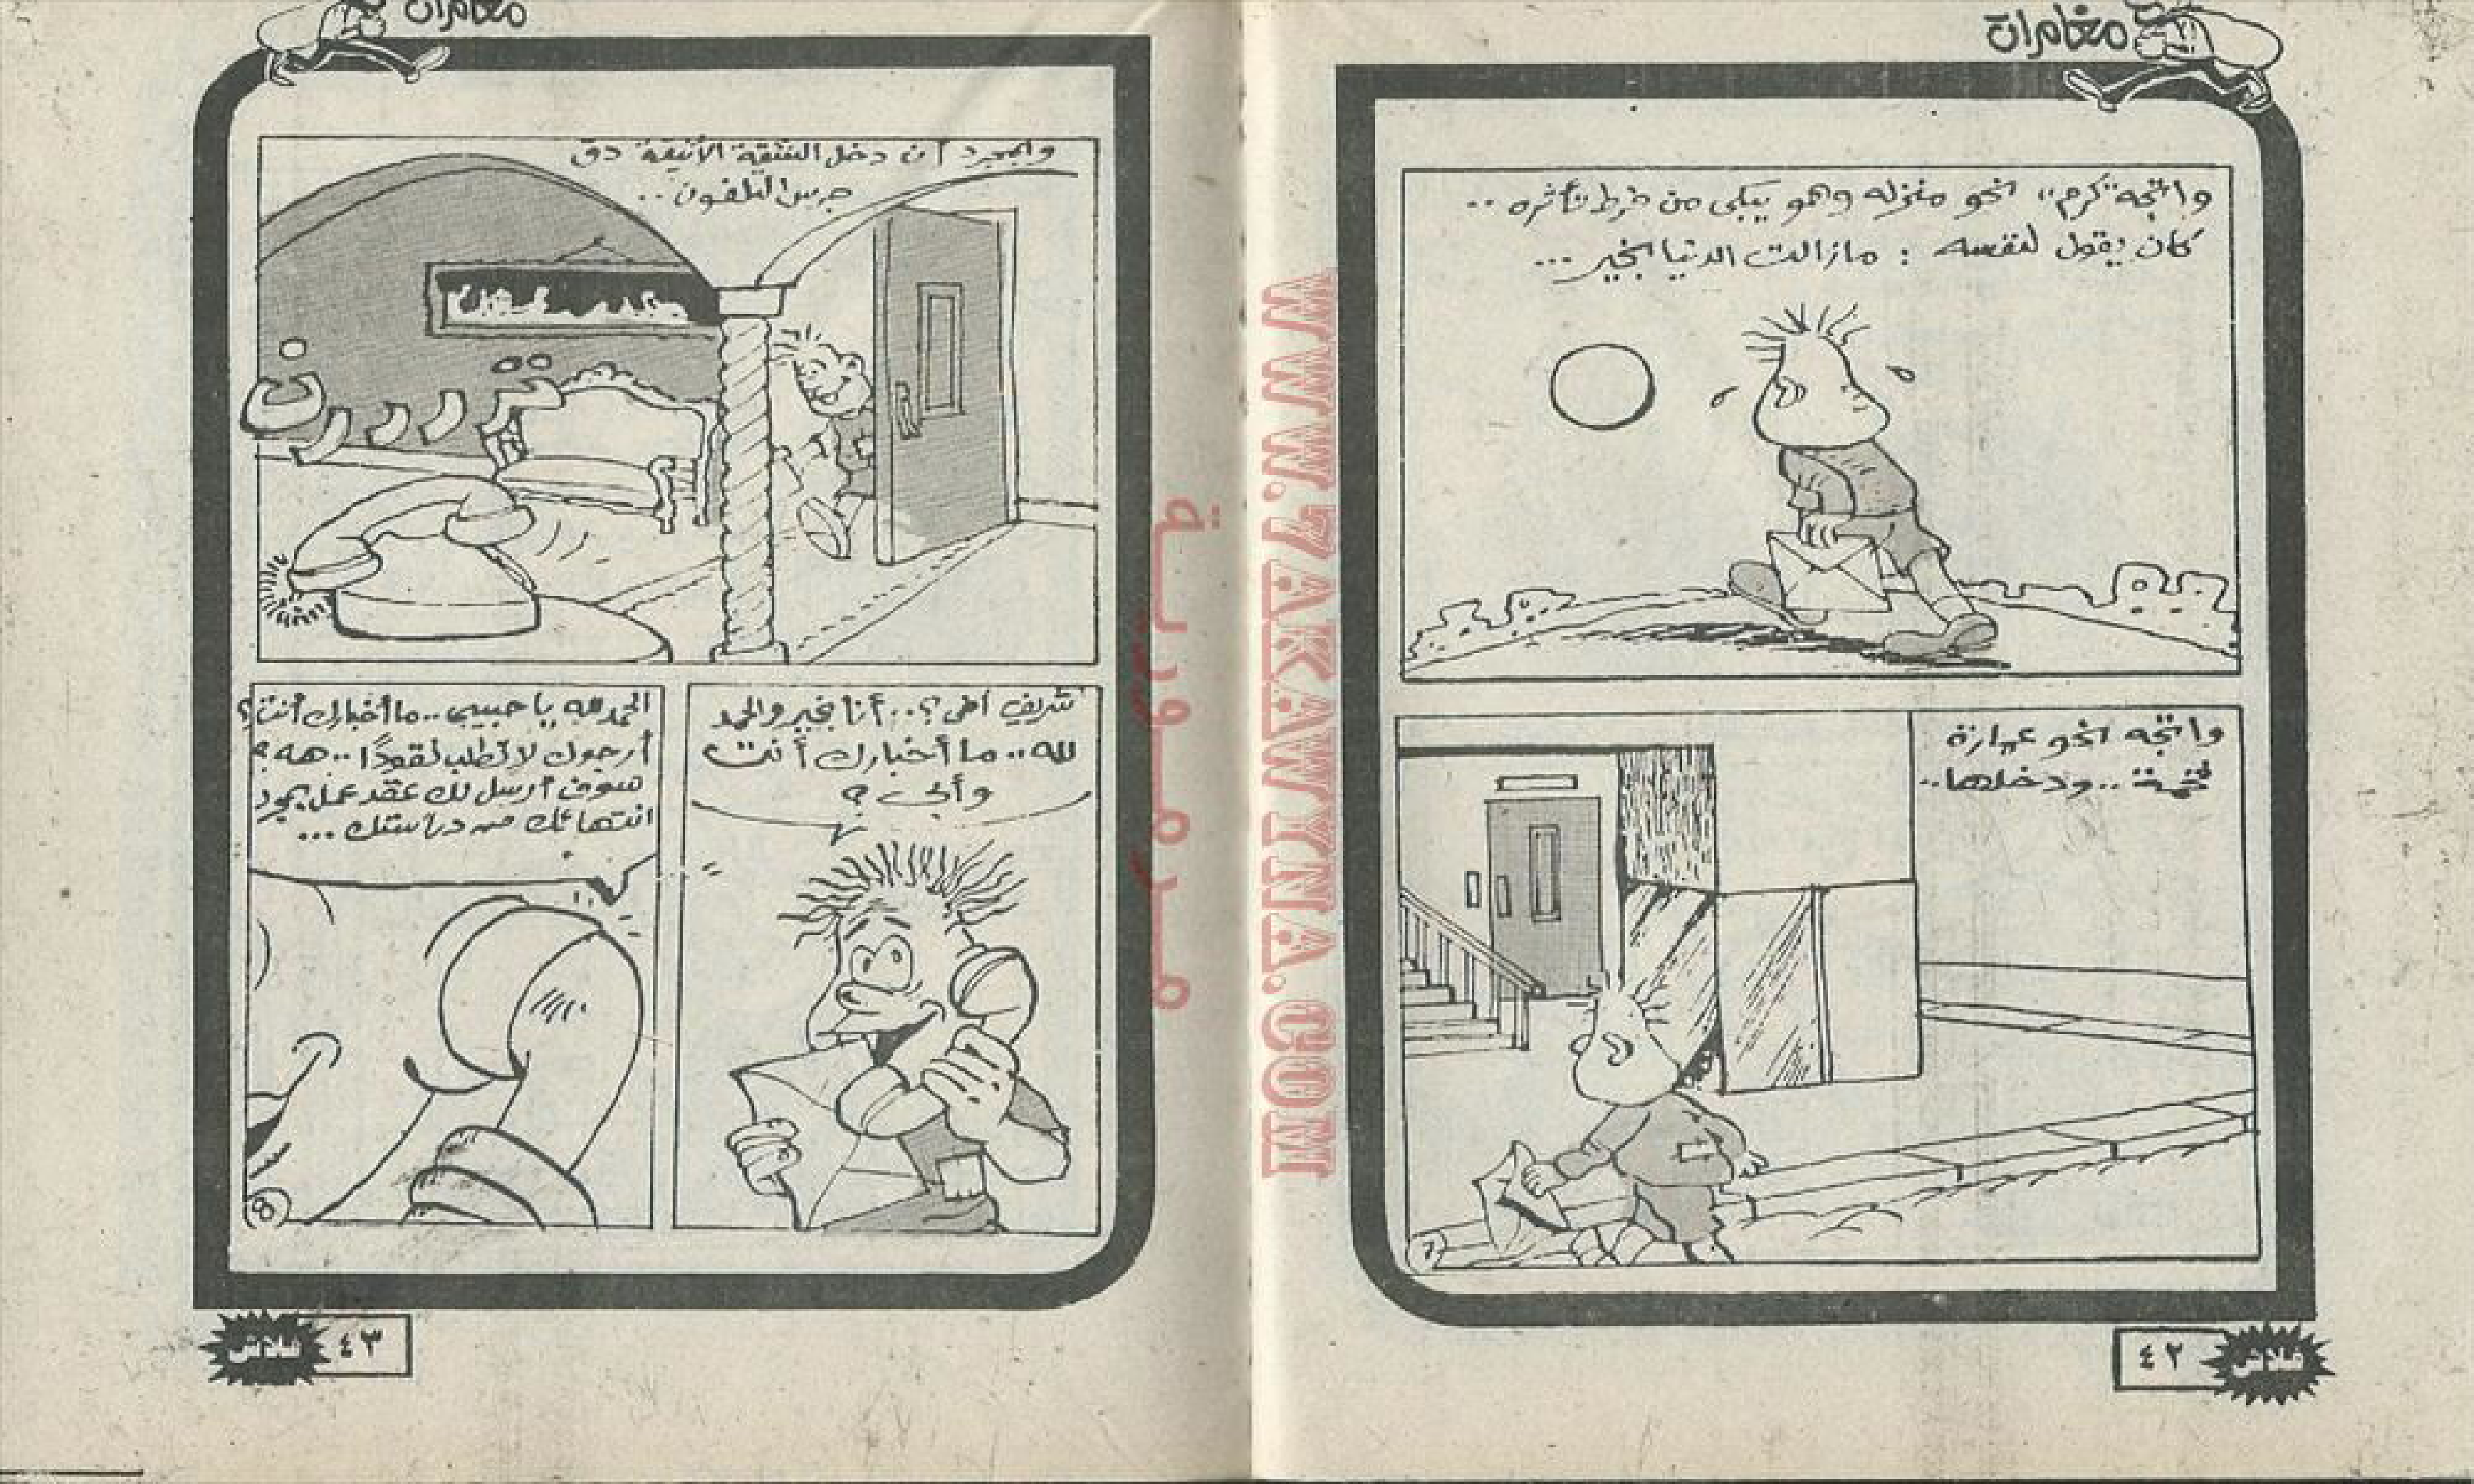 مغامرات
واتجه "كرم" نحو منزله وهو يبكي من فرط تأثره ..
كان يقول لنفسه : مازالت الدنيا بخير ...
واتجه نحو عمارة
فخمة .. ودخلها ..
7
٤٢
فلاش
مغامرات
وبمجرد أن دخل الشقة الأنيقة دق
جرس التلفون ..
ترررررن
شريف أخى ؟ .. أنا بخير والحمد
لله .. ما أخبارك أنت
وأبى ؟
الحمد لله يا حبيبى .. ما أخبارك أنت ؟
أرجوك لا تطلب نقودًا .. هه ؟
سوف أرسل لك عقد عمل بمجرد
انتهائك من دراستك ...
8
٤٣
فلاش
WWW.7AKAWITNA.COM